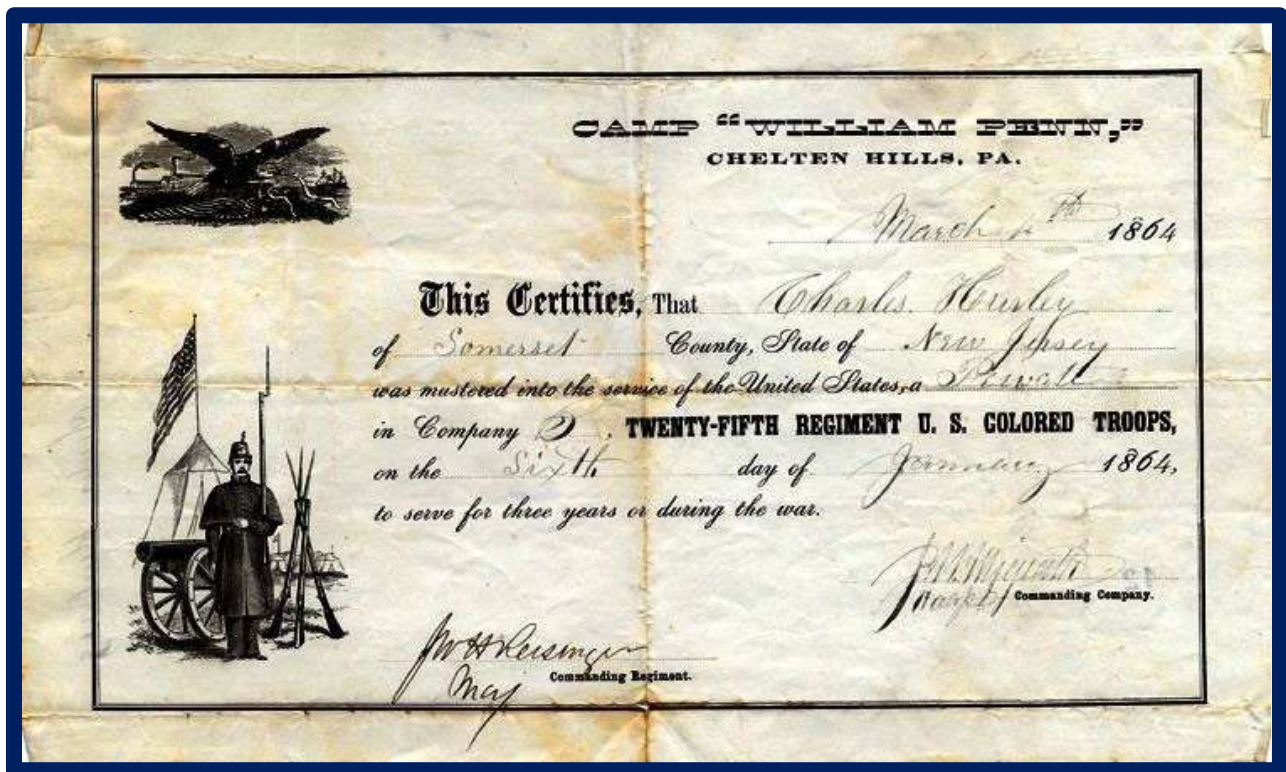 CAMP "WILLIAM PENN,"
CHELTEN HILLS, PA.
March th 1864
This Certifies, That Charles. Hurley
of Somerset County, State of New Jersey
was mustered into the service of the United States, a
in Company D, TWENTY-FIFTH REGIMENT U. S. COLORED TROOPS,
on the Sixth day of January 1864,
to serve for three years or during the war.
Commanding Company.
J W H Reisinger
Commanding Regiment.
Maj